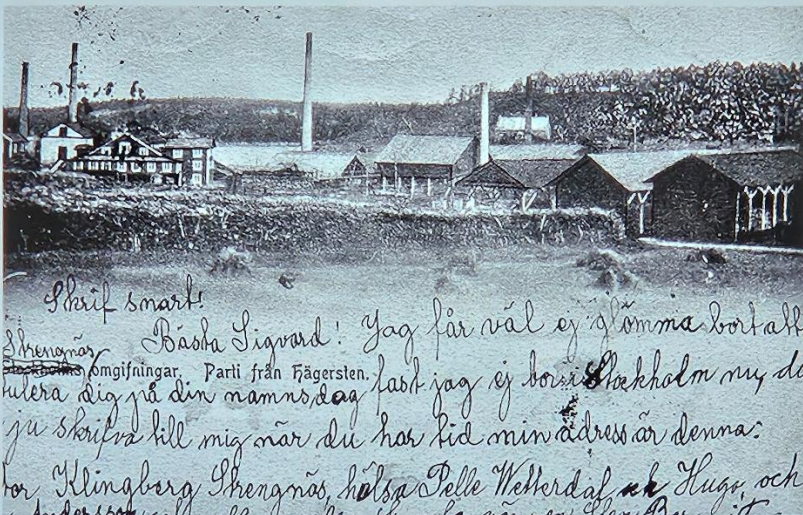 Skrif snart!
Bästa Sigvard! Jag får väl ej glömma bort att
Strengnäs
Stockholms omgifningar. Parti från Hägersten.
tulera dig på din namnsdag fast jag ej bor i Stockholm nu, du
ju skrifva till mig när du har tid min adress är denna:
Klingberg Strengnäs, hälsa Pelle Wetterdal och Hugo, och
Andersson